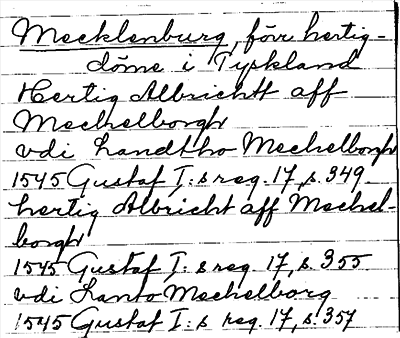 Mecklenburg, förr hertig-
döme i Tyskland
Hertig Albricht aff
Mechelborgh
vdi Landtho Mechelborgh
1545 Gustaf I:s reg. 17, s. 349
hertig Albricht aff Mechel-
borgh
1545 Gustaf I:s reg. 17, s. 355
vdi Lanto Mechelborg
1545 Gustaf I:s reg. 17, s. 357